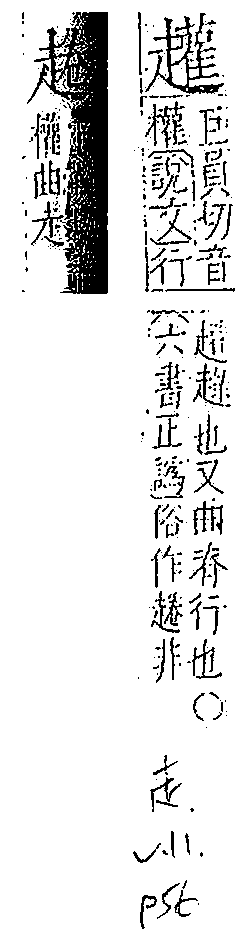 巨員切音
權說文行
也又曲脊行也○
六書正譌俗作非
權曲走
走.
v.11.
p56